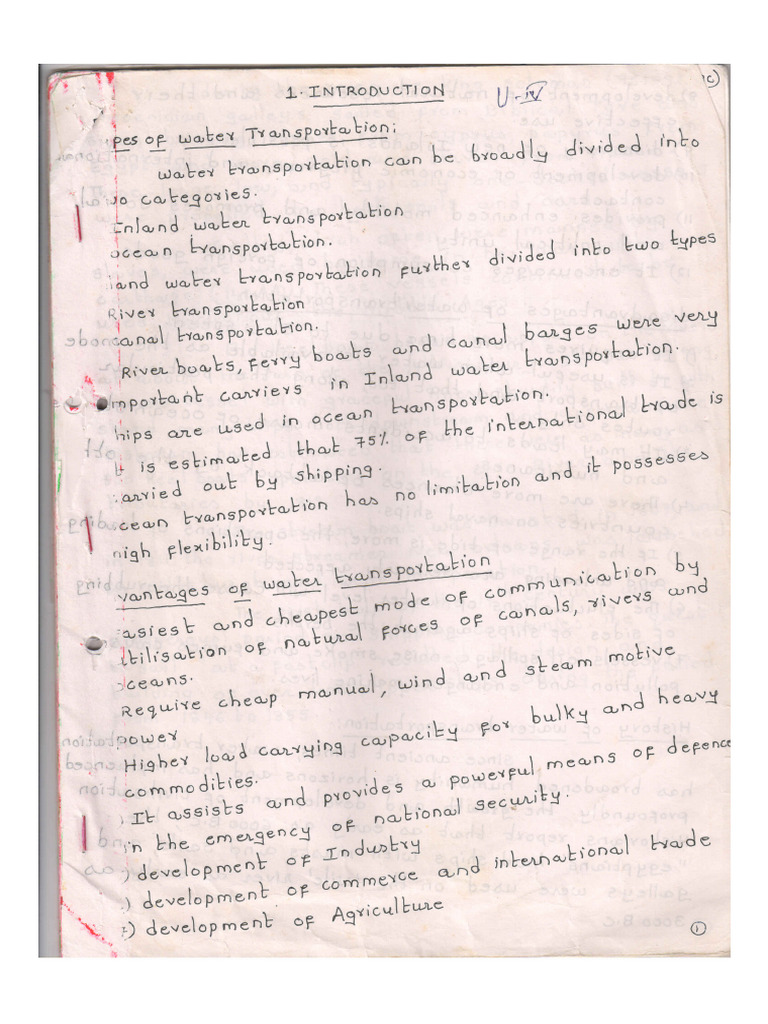 1. INTRODUCTION
U-IV
pes of water Transportation:
water transportation can be broadly divided into
wo categories.
Inland water transportation
ocean transportation.
land water transportation further divided into two types
River transportation
canal transportation.
River boats, Ferry boats and canal barges were very
mportant carriers in Inland water transportation.
hips are used in ocean transportation.
It is estimated that 75% of the international trade is
carried out by shipping.
ocean transportation has no limitation and it possesses
high flexibility.
vantages of water transportation
easiest and cheapest mode of communication by
utilisation of natural forces of canals, rivers and
oceans.
Require cheap manual, wind and steam motive
power
Higher load carrying capacity for bulky and heavy
commodities.
) It assists and provides a powerful means of defence
in the emergency of national security.
) development of Industry
) development of commerce and international trade
7) development of Agriculture
1